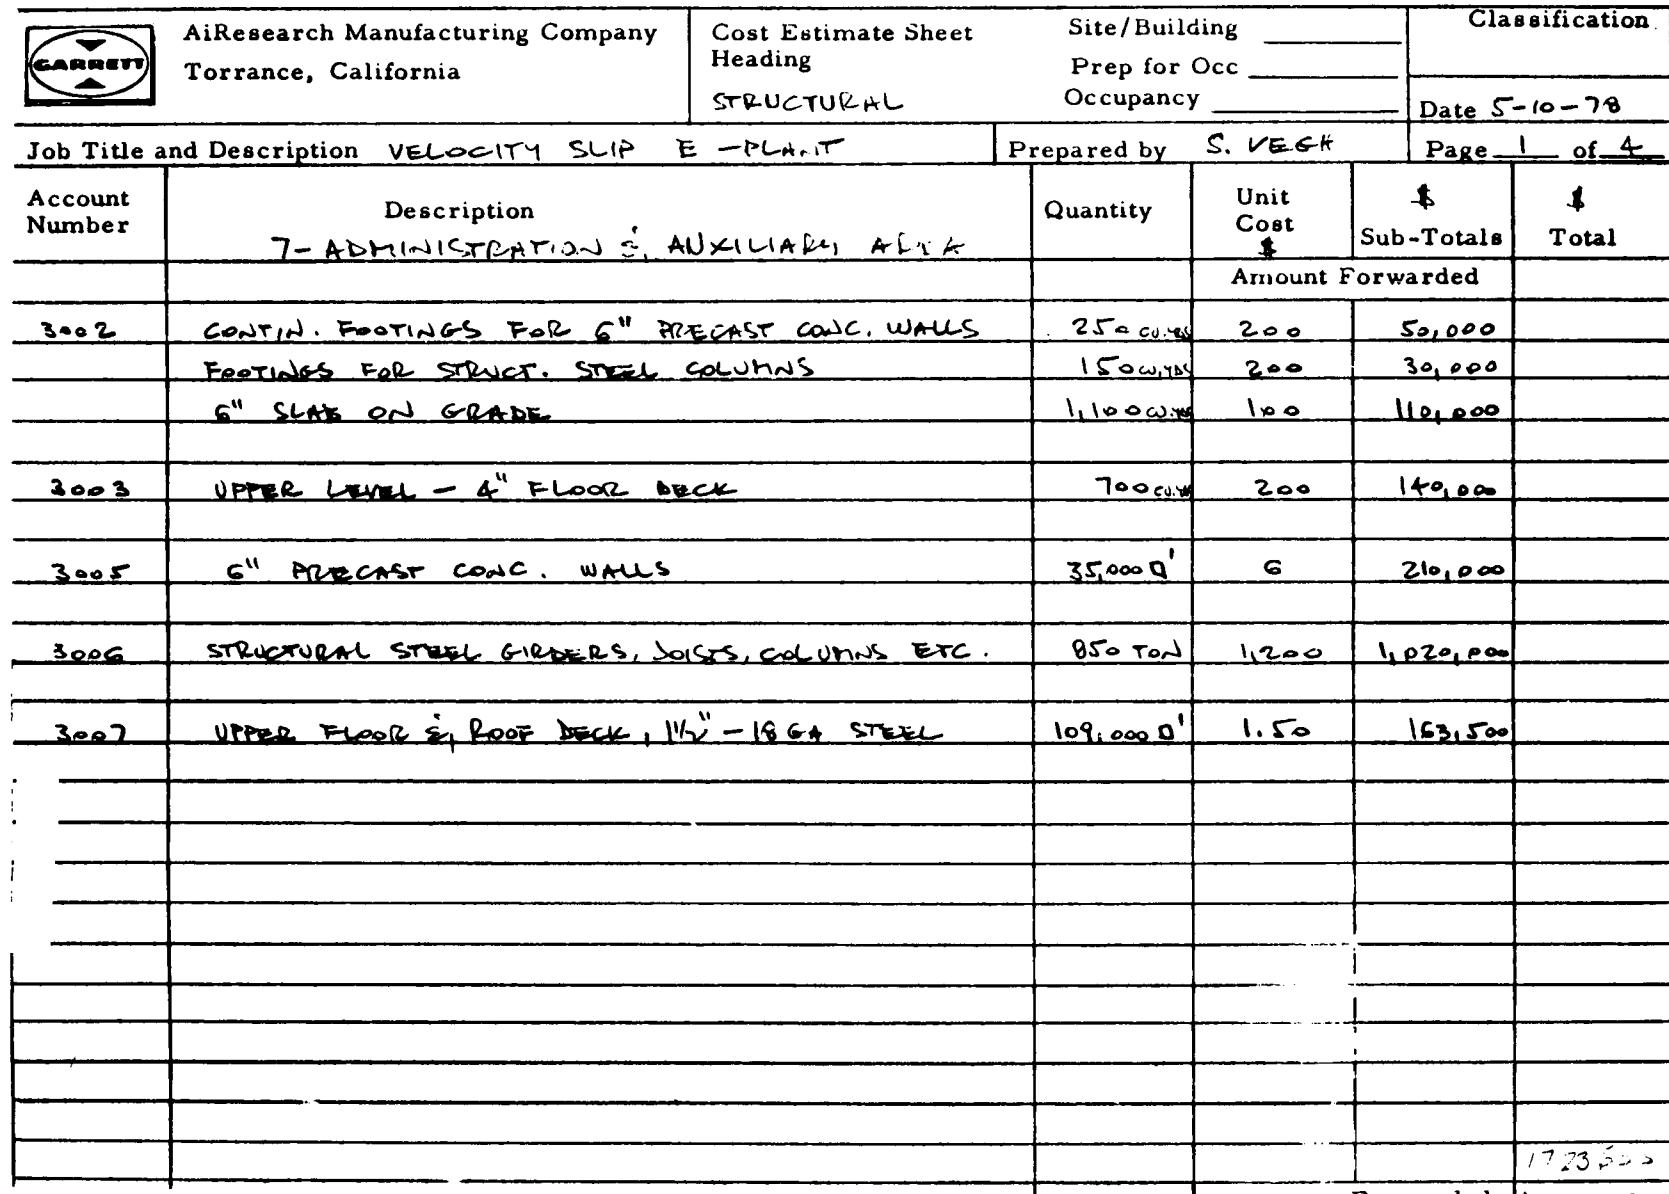 GARRETT
AiResearch Manufacturing Company
Torrance, California
Cost Estimate Sheet
Heading
STRUCTURAL
Site/Building
Prep for Occ
Occupancy
Classification
Date 5-10-78
Job Title and Description VELOCITY SLIP E-PLANT
Prepared by S. VEGH
Page 1 of 4
Account Number
Description
7- ADMINISTRATION & AUXILIARY AREA
Quantity
Unit Cost $
$ Sub-Totals
$ Total
Amount Forwarded
3002 CONTIN. FOOTINGS FOR 6" PRECAST CONC. WALLS 250 CU.YDS 200 50,000
FOOTINGS FOR STRUCT. STEEL COLUMNS 150 CU.YDS 200 30,000
6" SLAB ON GRADE 1,100 CU.YDS 100 110,000
3003 UPPER LEVEL - 4" FLOOR DECK 700 CU.YDS 200 140,000
3005 6" PRECAST CONC. WALLS 35,000 □' 6 210,000
3006 STRUCTURAL STEEL GIRDERS, JOISTS, COLUMNS ETC. 850 TON 1,200 1,020,000
3007 UPPER FLOOR & ROOF DECK, 1½" - 18 GA STEEL 109,000 □' 1.50 163,500